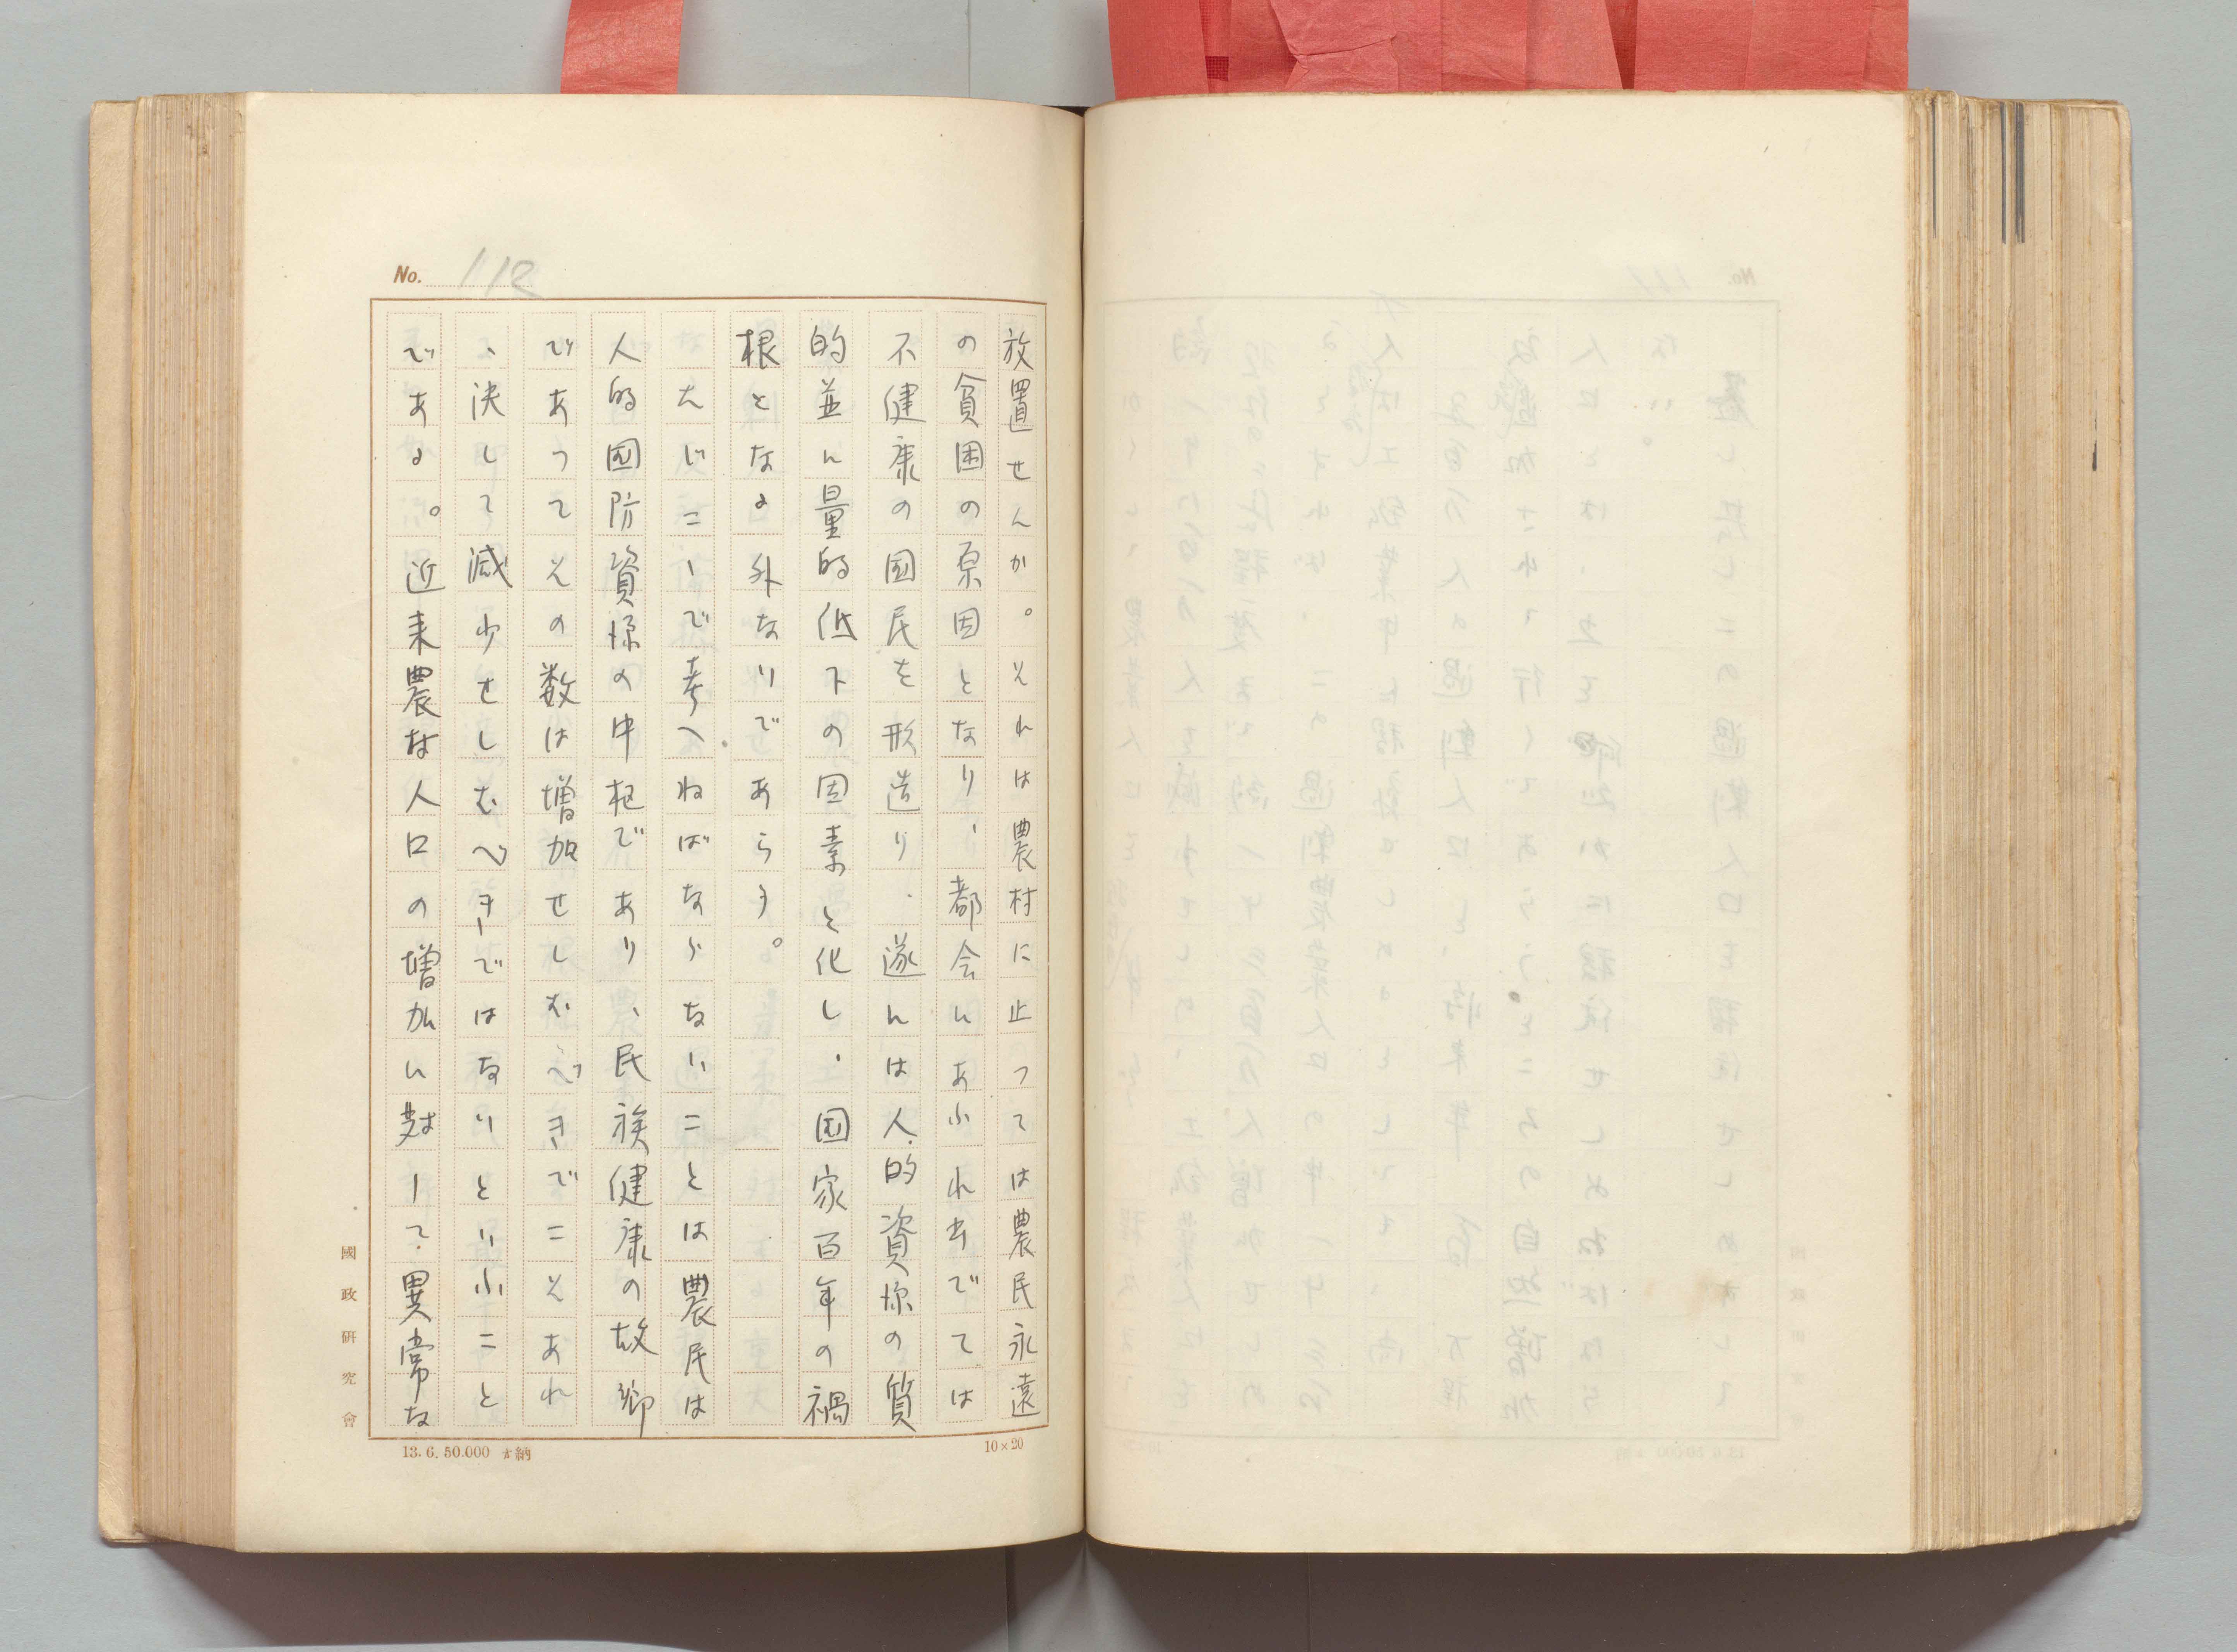 No. 112
放置せんか。それは農村に止つては農民永遠
の貧困の原因となり、都会にあふれ出でては
不健康の国民を形造り、遂には人的資源の質
的並に量的低下の因素と化し、国家百年の禍
根となる外ないであらう。
なんじこゝで考へねばならないことは農民は
人的國防資源の中枢であり、民族健康の故郷
であつてその数は増加せしむべきでこそあれ
、決して減少せしむべきではないといふこと
である。近来農村人口の増加に対して異常な
國政研究會
13.6.50.000 納
10×20